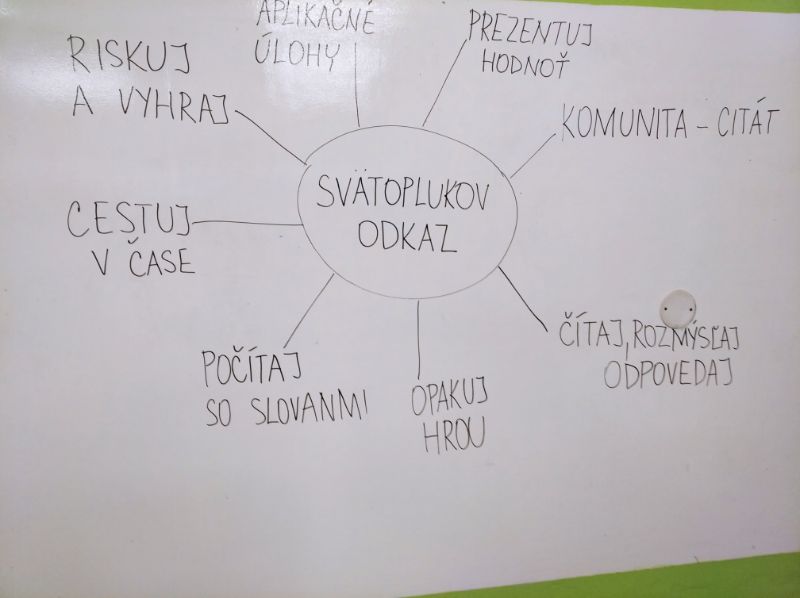 APLIKAČNÉ
ÚLOHY
PREZENTUJ
HODNOŤ
RISKUJ
A VYHRAJ
KOMUNITA – CITÁT
SVÄTOPLUKOV
ODKAZ
CESTUJ
V ČASE
ČÍTAJ, ROZMÝSĽAJ
ODPOVEDAJ
POČÍTAJ
SO SLOVANMI
OPAKUJ
HROU